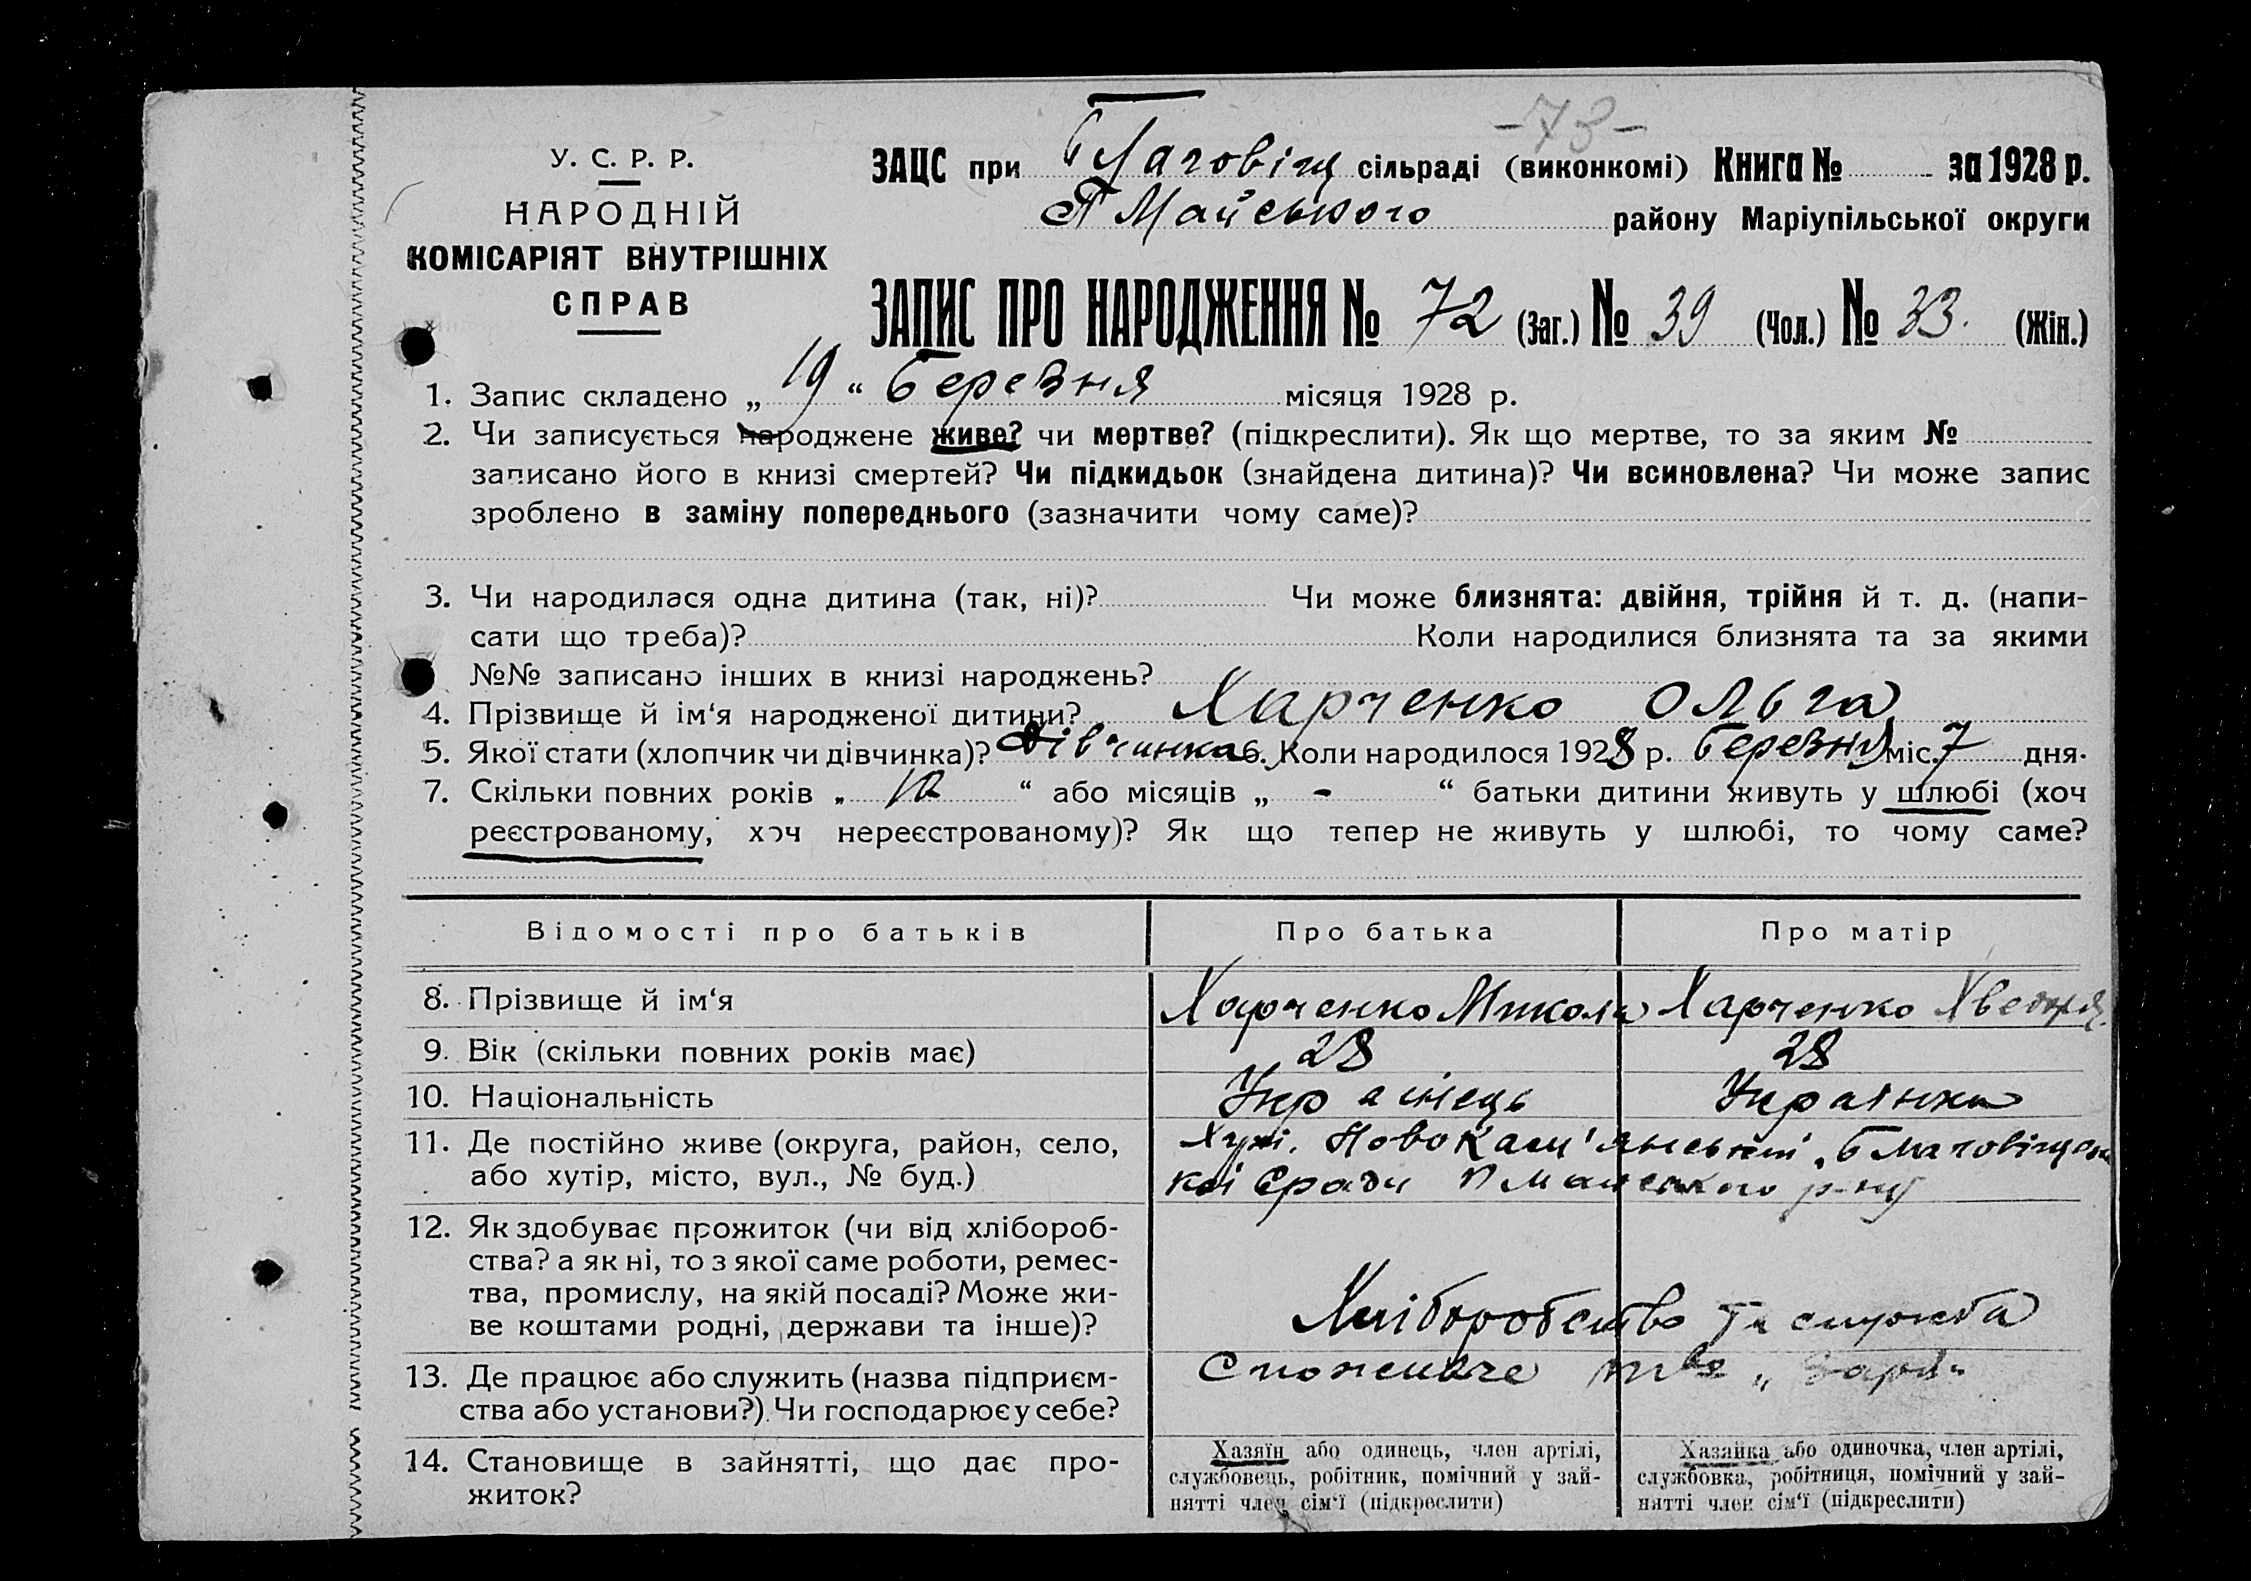 -73-
У. С. Р. Р.
НАРОДНІЙ
КОМІСАРІЯТ ВНУТРІШНІХ
СПРАВ
ЗАЦС при Благовіщ сільраді (виконкомі) Книга № за 1928 р.
П Майського району Маріупільської округи
ЗАПИС ПРО НАРОДЖЕННЯ № 72 (Заг.) № 39 (Чол.) № 33. (Жін.)
1. Запис складено „ 19 “ Березня місяця 1928 р.
2. Чи записується народжене живе? чи мертве? (підкреслити). Як що мертве, то за яким №
записано його в книзі смертей? Чи підкидьок (знайдена дитина)? Чи всиновлена? Чи може запис
зроблено в заміну попереднього (зазначити чому саме)?
3. Чи народилася одна дитина (так, ні)? Чи може близнята: двійня, трійня й т. д. (напи-
сати що треба)? Коли народилися близнята та за якими
№№ записано інших в книзі народжень?
4. Прізвище й ім‘я народженої дитини? Харченко Ольга
5. Якої стати (хлопчик чи дівчинка)? Дівчинка 6. Коли народилося 1928 р. Березня міс. 7 дня.
7. Скільки повних років „ “ або місяців „ - “ батьки дитини живуть у шлюбі (хоч
реєстрованому, хоч нереєстрованому)? Як що тепер не живуть у шлюбі, то чому саме?
Відомості про батьків Про батька Про матір
8. Прізвище й ім‘я Харченко Микола Харченко
9. Вік (скільки повних років має) 28 28
10. Національність Українець Українка
11. Де постійно живе (округа, район, село, Хут. Новокам'янський Благовіщенсь
або хутір, місто, вул., № буд.) кої Сради П Майського р-ну
12. Як здобуває прожиток (чи від хлібороб-
ства? а як ні, то з якої саме роботи, ремес-
тва, промислу, на якій посаді? Може жи- Хліборобство та служба
ве коштами родні, держави та інше)?
13. Де працює або служить (назва підприєм- Споживче тво „Заря“
ства або установи?). Чи господарює у себе?
14. Становище в зайнятті, що дає про-
житок?
Хазяїн або одинець, член артілі,
службовець, робітник, помічний у зай-
нятті член сім‘ї (підкреслити)
Хазяйка або одиночка, член артілі,
службовка, робітниця, помічний у зай-
нятті член сім‘ї (підкреслити)